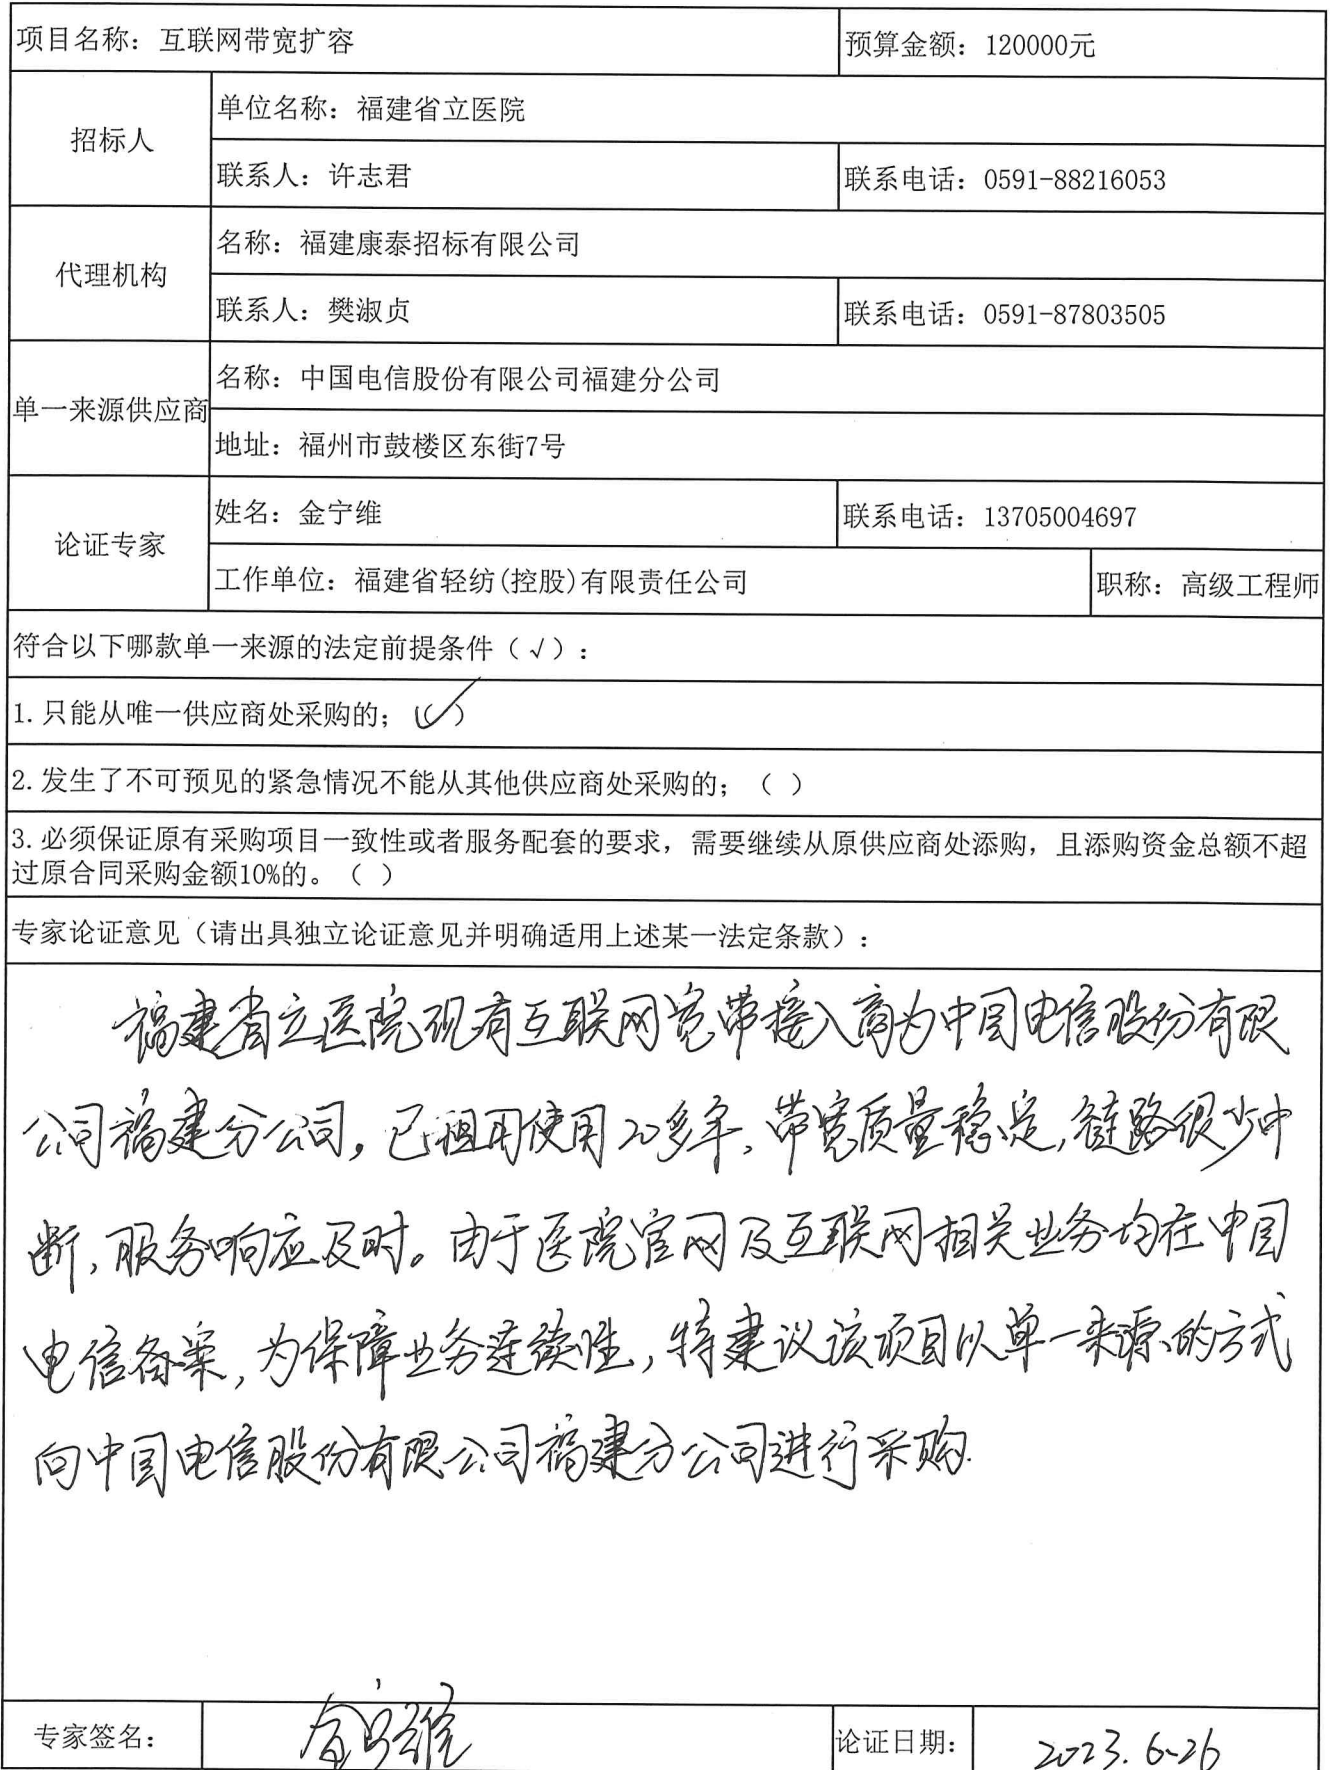 项目名称：互联网带宽扩容
预算金额：120000元
招标人
单位名称：福建省立医院
联系人：许志君
联系电话：0591-88216053
代理机构
名称：福建康泰招标有限公司
联系人：樊淑贞
联系电话：0591-87803505
单一来源供应商
名称：中国电信股份有限公司福建分公司
地址：福州市鼓楼区东街7号
论证专家
姓名：金宁维
联系电话：13705004697
工作单位：福建省轻纺(控股)有限责任公司
职称：高级工程师
符合以下哪款单一来源的法定前提条件（√）：
1.只能从唯一供应商处采购的；（✓）
2.发生了不可预见的紧急情况不能从其他供应商处采购的；（ ）
3.必须保证原有采购项目一致性或者服务配套的要求，需要继续从原供应商处添购，且添购资金总额不超
过原合同采购金额10%的。（ ）
专家论证意见（请出具独立论证意见并明确适用上述某一法定条款）：
福建省立医院现有互联网宽带接入商为中国电信股份有限
公司福建分公司，已租用使用20多年，带宽质量稳定，链路很少中
断，服务响应及时。由于医院官网及互联网相关业务均在中国
电信备案，为保障业务连续性，特建议该项目以单一来源的方式
向中国电信股份有限公司福建分公司进行采购.
专家签名：
金宁维
论证日期：
2023.6.26